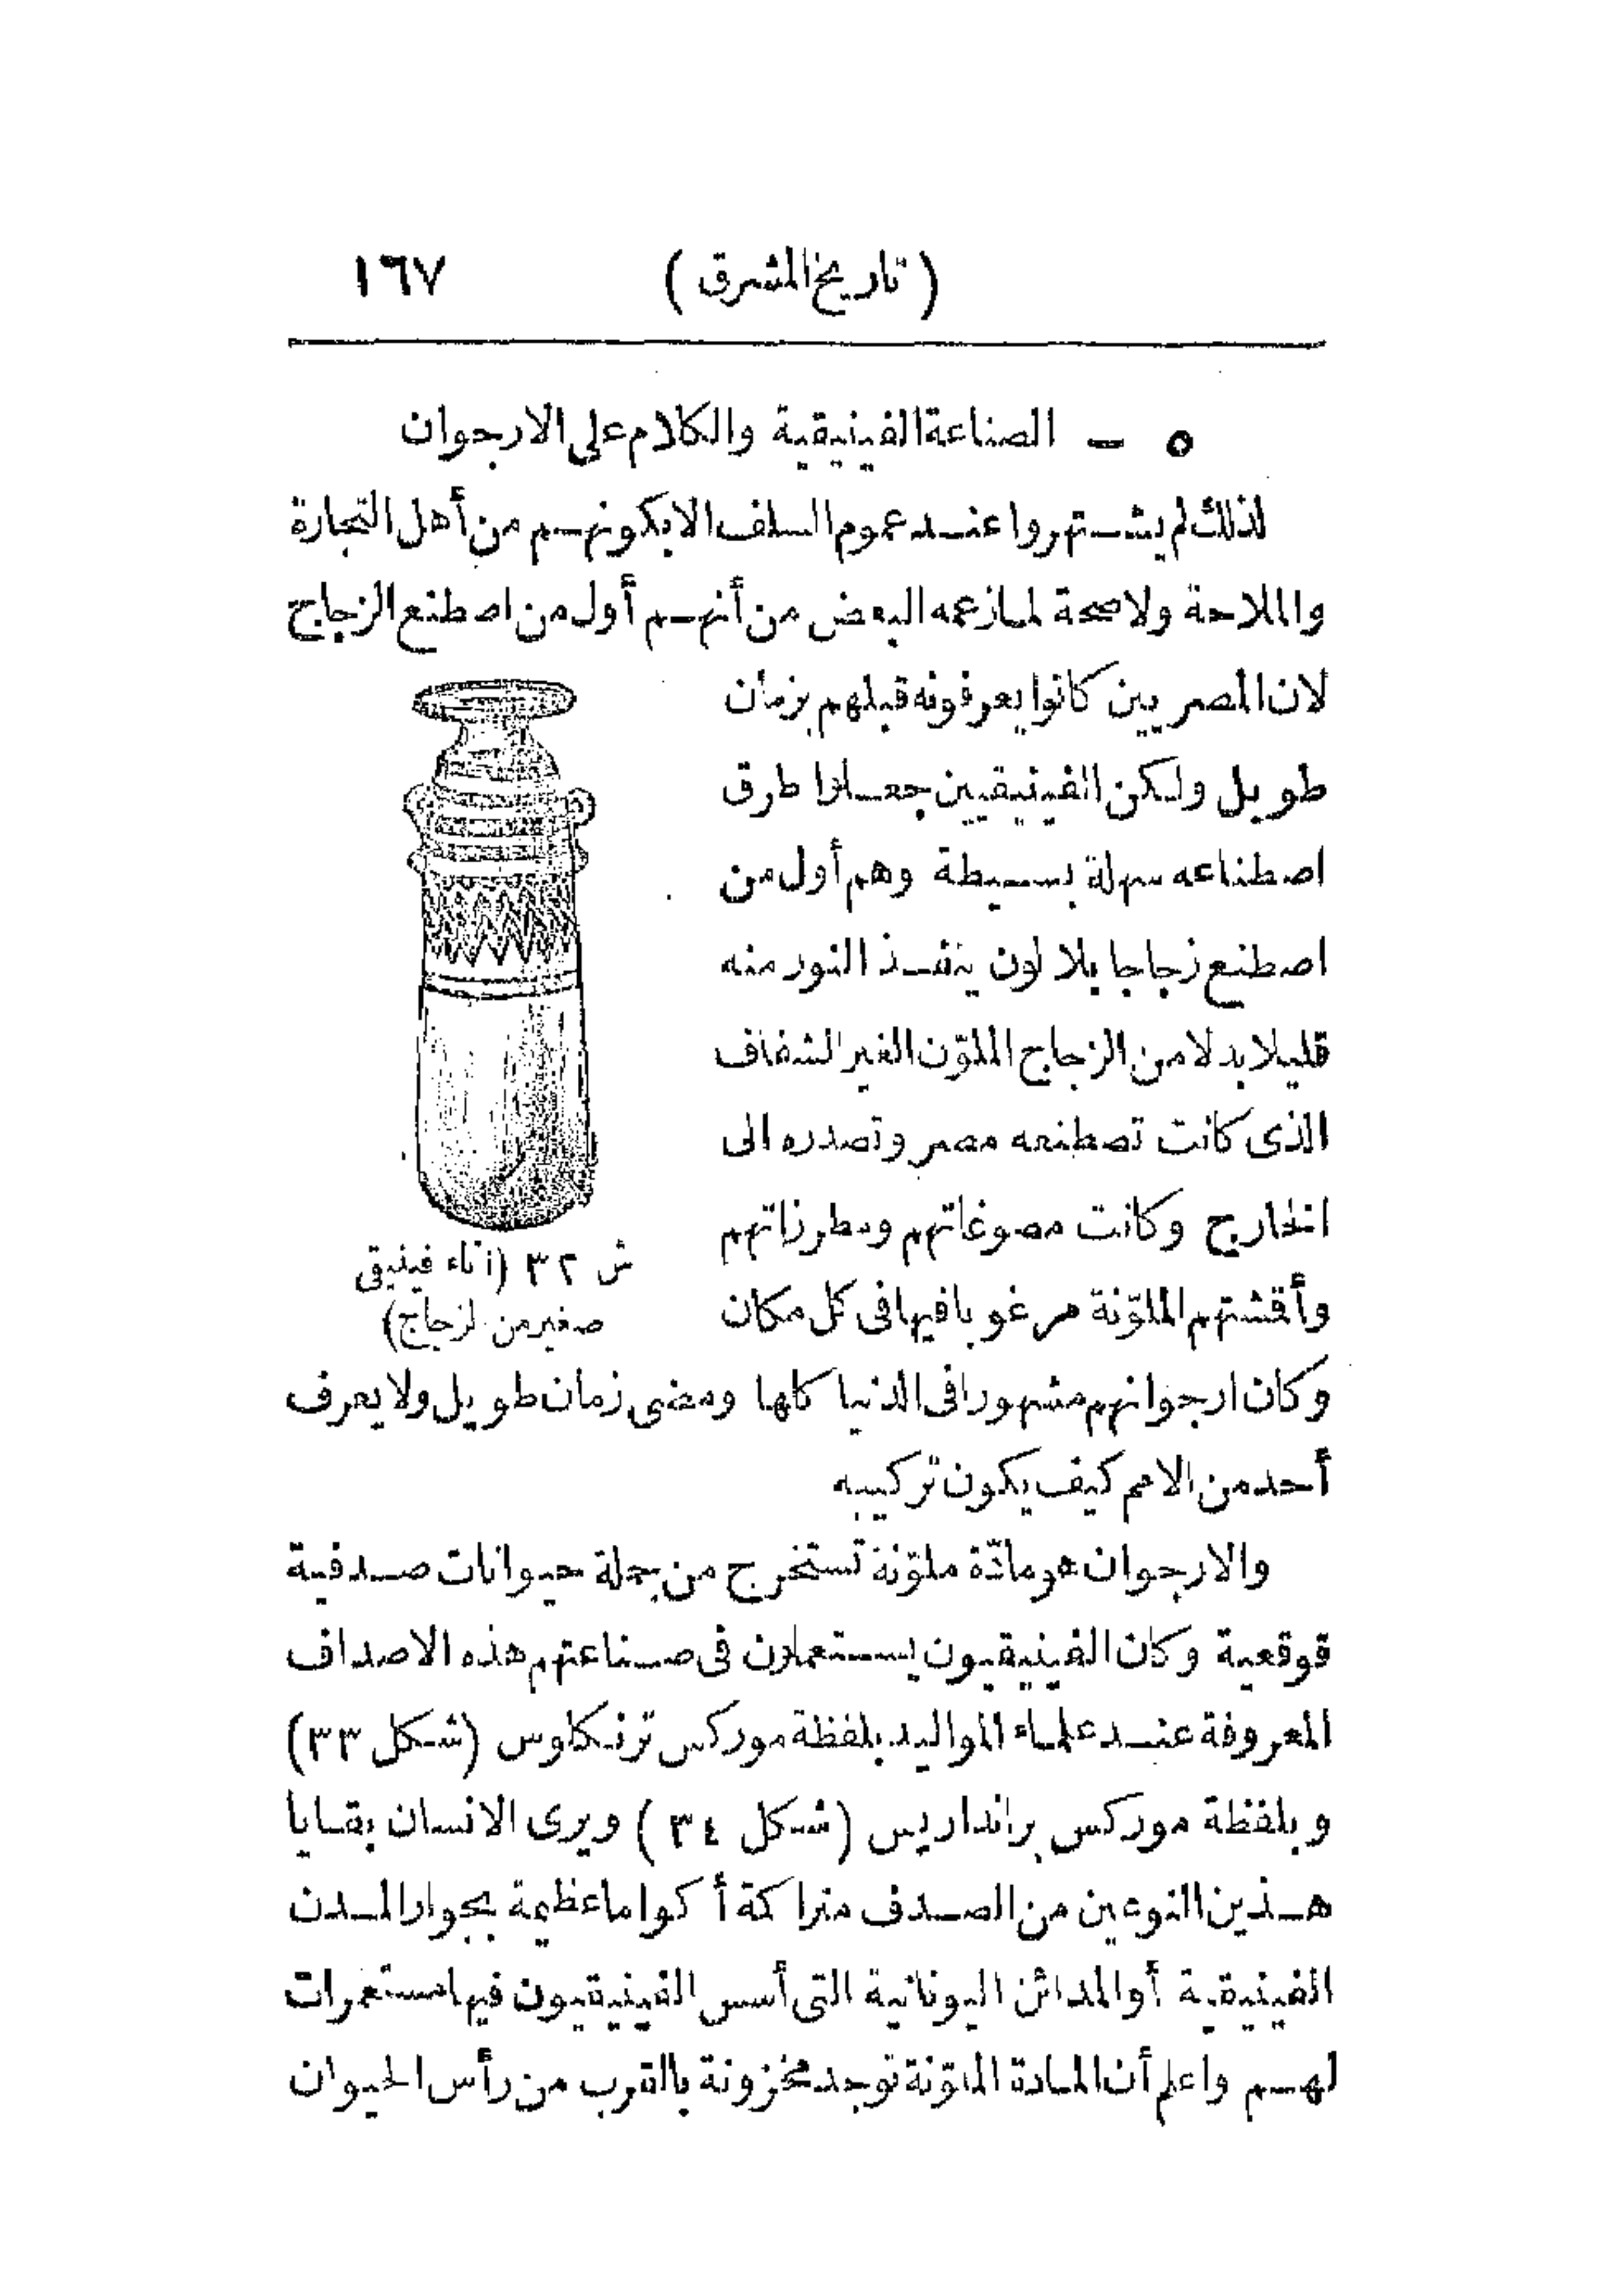 ( تاريخ المشرق ) ١٦٧
٥ – الصناعة الفينيقية والكلام على الارجوان
لذلك لم يشتهروا عند عموم السلف الا بكونهم من أهل التجارة
والملاحة ولا صحة لما زعمه البعض من أنهم أول من اصطنع الزجاج
لان المصريين كانوا يعرفونه قبلهم بزمان
طويل ولكن الفينيقيين جعلوا طرق
اصطناعه سهلة بسيطة وهم أول من
اصطنع زجاجا بلا لون ينفذ النور منه
قليلا بدلا من الزجاج الملوّن الغير الشفاف
الذى كانت تصطنعه مصر وتصدره الى
الخارج وكانت مصوغاتهم ومطرزاتهم
وأقشتهم الملوّنة مرغوبا فيها فى كل مكان
ش ٣٢ (اناء فينيقى
صغير من الزجاج)
وكان ارجوانهم مشهورا فى الدنيا كلها ومضى زمان طويل ولا يعرف
أحد من الامم كيف يكون تركيبه
والارجوان هو مادّة ملوّنة تستخرج من جملة حيوانات صدفية
قوقعية وكان الفينيقيون يستعملون فى صناعتهم هذه الاصداف
المعروفة عند علماء المواليد بلفظة موركس ترنكلوس (شكل ٣٣)
وبلفظة موركس برانداريس (شكل ٣٤) ويرى الانسان بقايا
هذين النوعين من الصدف متراكمة أكواما عظيمة بجوار المدن
الفينيقية أو المدائن اليونانية التى أسس الفينيقيون فيها مستعمرات
لهم واعلم أن المادة الملوّنة توجد مخزونة بالقرب من رأس الحيوان